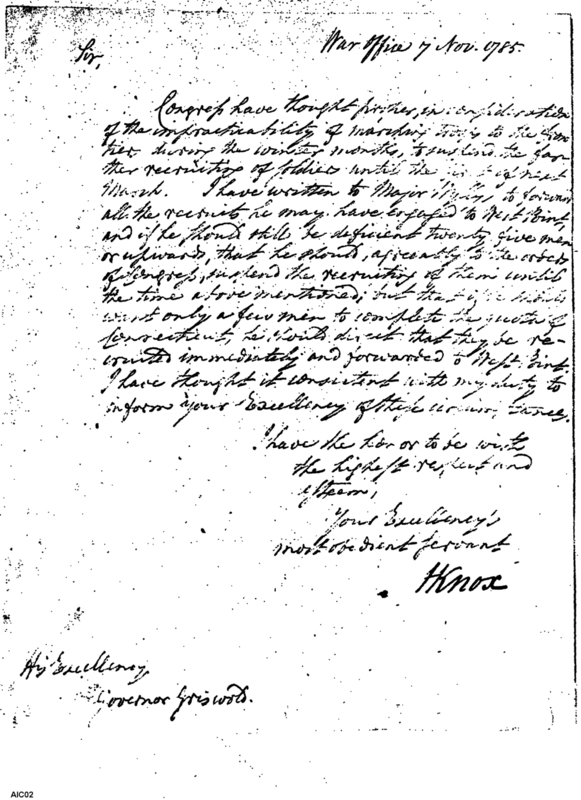 War Office 7 Nov. 1785.
Sir,
Congress have thought proper, in consideration
of the impracticability of marching troops to the fron
tier during the winter months, to suspend the far
ther recruiting of soldiers until the first of next
March. I have written to Major Wyllys to forward
all the recruits he may have engaged to West Point,
and if he should still be deficient twenty five men
or upwards, that he should, agreeably to the orders
of Congress, suspend the recruiting of them until
the time above mentioned; but that if he should
want only a few men to complete the quota of
Connecticut, he should direct that they be re-
cruited immediately and forwarded to West Point.
I have thought it consistent with my duty to
inform your Excellency of these circumstances.
I have the honor to be with
the highest respect and
esteem,
Your Excellency's
most obedient servant
HKnox
His Excellency,
Governor Griswold.
AIC02